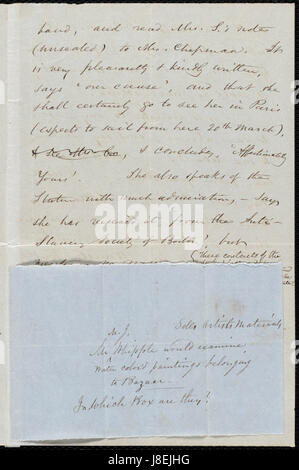 hand, and read Mrs. S.'s note
(unsealed) to Mrs. Chapman. It
is very pleasantly & kindly written,
says "our cause", and that she
shall certainly go to see her in Paris
(expects to sail from here 20th March),
& concludes, "Affectionately
Yours". She also speaks of the
with much admiration, – says
she has it from the Anti-
Slavery Society of Boston! but
(three contents of the
Sells Artists Materials.
Mr. Whipple would examine
Water color paintings belonging
to Bazaar.
In which Box are they?
alamy
Image ID: J8EJHG
www.alamy.com